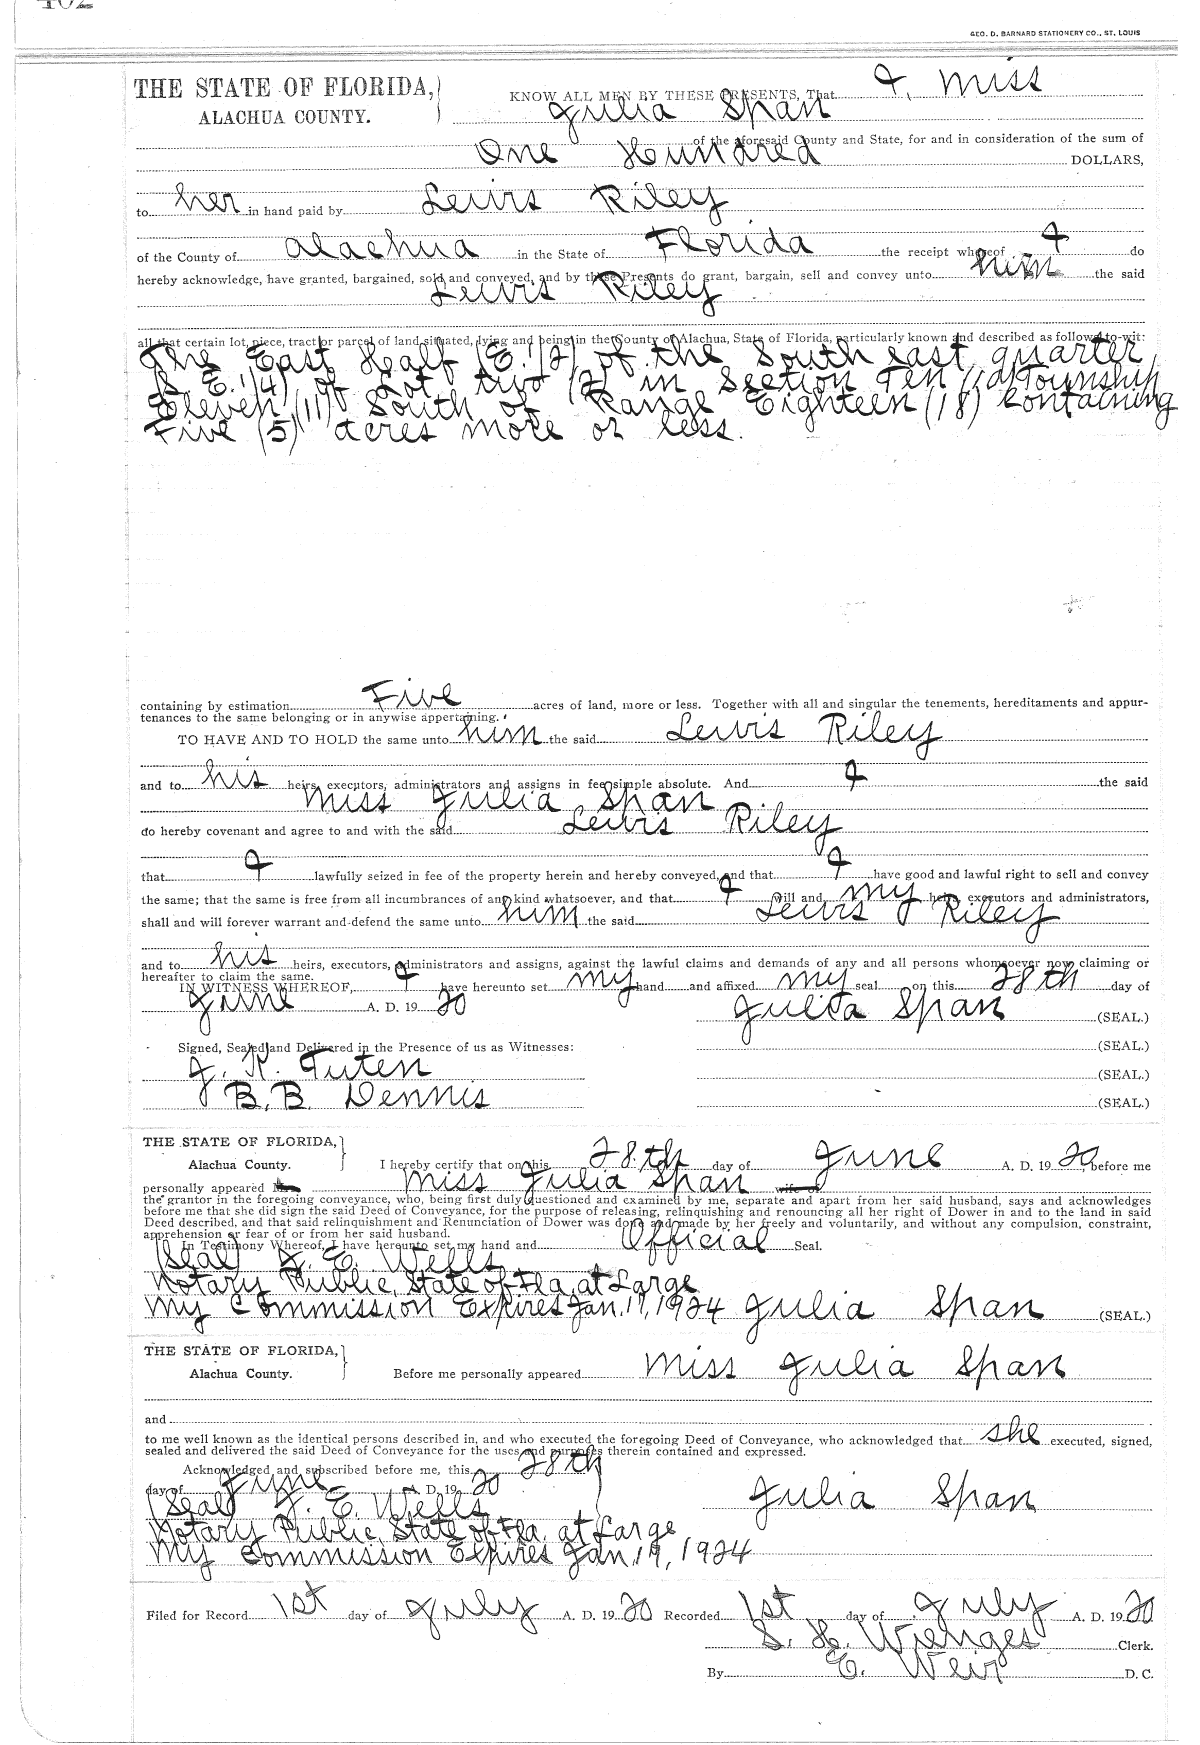 402
GEO. D. BARNARD STATIONERY CO., ST. LOUIS
THE STATE OF FLORIDA,
ALACHUA COUNTY.
KNOW ALL MEN BY THESE PRESENTS, That I, Miss
Julia Span
of the aforesaid County and State, for and in consideration of the sum of
One Hundred DOLLARS,
to her in hand paid by Lewis Riley
of the County of Alachua in the State of Florida the receipt whereof I do
hereby acknowledge, have granted, bargained, sold and conveyed, and by these Presents do grant, bargain, sell and convey unto him the said
Lewis Riley
all that certain lot, piece, tract or parcel of land situated, lying and being in the County of Alachua, State of Florida, particularly known and described as follows, to-wit:
The East Half (E.1/2) of the South east quarter
(S.E.1/4) of Lot two (2) in Section Ten (10) Township
Eleven (11) South of Range Eighteen (18) Containing
Five (5) acres more or less.
containing by estimation Five acres of land, more or less. Together with all and singular the tenements, hereditaments and appur-
tenances to the same belonging or in anywise appertaining.
TO HAVE AND TO HOLD the same unto him the said Lewis Riley
and to his heirs, executors, administrators and assigns in fee simple absolute. And I the said
Miss Julia Span
do hereby covenant and agree to and with the said Lewis Riley
that I lawfully seized in fee of the property herein and hereby conveyed, and that I have good and lawful right to sell and convey
the same; that the same is free from all incumbrances of any kind whatsoever, and that I will and my heirs, executors and administrators,
shall and will forever warrant and defend the same unto him the said Lewis Riley
and to his heirs, executors, administrators and assigns, against the lawful claims and demands of any and all persons whomsoever now claiming or
hereafter to claim the same.
IN WITNESS WHEREOF, I have hereunto set my hand and affixed my seal on this 28th day of
June A. D. 1920 Julia Span (SEAL.)
Signed, Sealed and Delivered in the Presence of us as Witnesses: (SEAL.)
J. R. Tuten (SEAL.)
B.B. Dennis (SEAL.)
THE STATE OF FLORIDA,
Alachua County.
I hereby certify that on this 28.th day of June A. D. 1920 before me
personally appeared Miss Julia Span wife of
the grantor in the foregoing conveyance, who, being first duly questioned and examined by me, separate and apart from her said husband, says and acknowledges
before me that she did sign the said Deed of Conveyance, for the purpose of releasing, relinquishing and renouncing all her right of Dower in and to the land in said
Deed described, and that said relinquishment and Renunciation of Dower was done and made by her freely and voluntarily, and without any compulsion, constraint,
apprehension or fear of or from her said husband.
In Testimony Whereof, I have hereunto set my hand and Official Seal.
(Seal) J. E. Wells
Notary Public, State of Fla. at Large
My Commission Expires Jan. 17, 1924 Julia Span (SEAL.)
THE STATE OF FLORIDA,
Alachua County.
Before me personally appeared Miss Julia Span
and
to me well known as the identical persons described in, and who executed the foregoing Deed of Conveyance, who acknowledged that she executed, signed,
sealed and delivered the said Deed of Conveyance for the uses and purposes therein contained and expressed.
Acknowledged and subscribed before me, this 28th
day of June A. D. 1920
(Seal) J. E. Wells Julia Span
Notary Public, State of Fla. at Large
My Commission Expires Jan. 17, 1924
Filed for Record 1st day of July A. D. 1920 Recorded 1st day of July A. D. 1920
S. H. Wienges Clerk.
By E. Weir D. C.